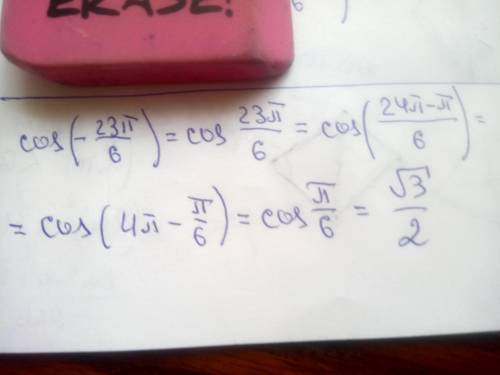 ERASE!
cos(-23π/6) = cos 23π/6 = cos(24π-π/6) =
= cos(4π - π/6) = cos π/6 = √3/2